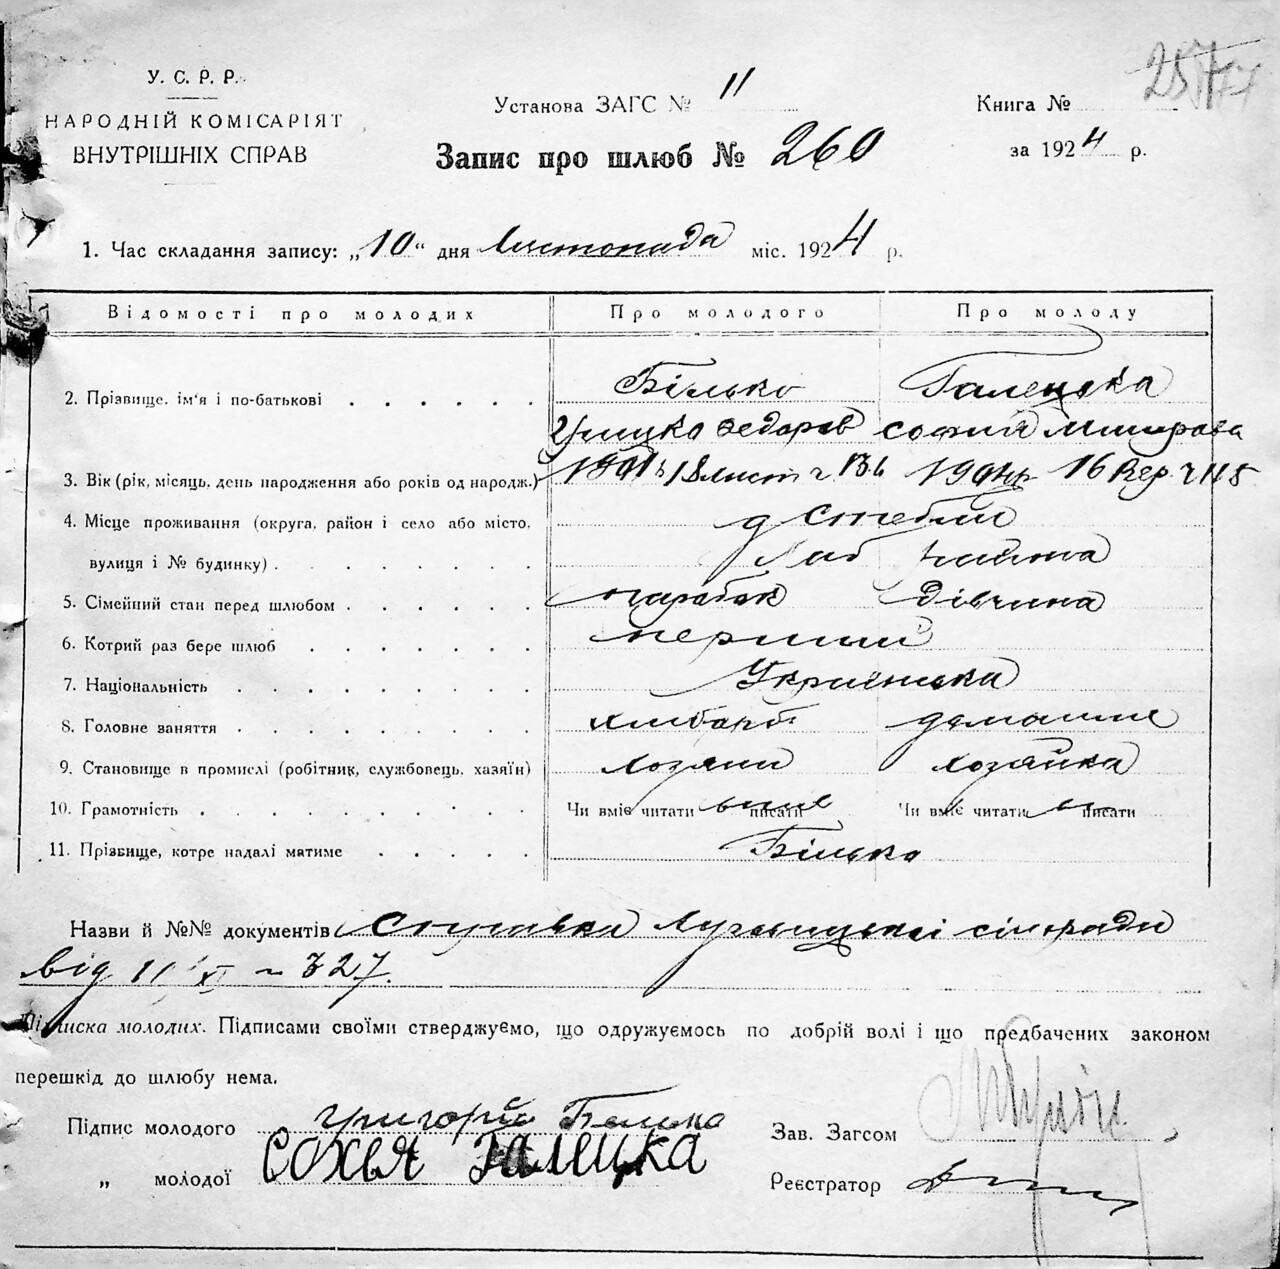 У. С. Р. Р.
НАРОДНІЙ КОМІСАРІЯТ
ВНУТРІШНІХ СПРАВ
Установа ЗАГС № 11
Запис про шлюб № 260
Книга №
за 1924 р.
1. Час складання запису: „10" дня Листопада міс. 1924 р.
Відомості про молодих Про молодого Про молоду
2. Прізвище, ім'я і по-батькові Білько Галецька
Грицко Федоров София
3. Вік (рік, місяць, день народження або років од народж.) 1901 18 лист 16 Вер
4. Місце проживання (округа, район і село або місто,
вулиця і № будинку) . района
5. Сімейний стан перед шлюбом парубок дівчина
6. Котрий раз бере шлюб перший
7. Національність Українська
8. Головне заняття хлібороб домашнє
9. Становище в промислі (робітник, службовець, хазяїн) хозяин хозяйка
10. Грамотність Чи вміє читати писати Чи вміє читати писати
11. Прізбище, котре надалі матиме Білько
Назви й №№ документів сільради
від 11/XI № 327.
Підписка молодих. Підписами своїми стверджуємо, що одружуємось по добрій волі і що предбачених законом
перешкід до шлюбу нема.
Підпис молодого григорій Белько
„ молодої СОХЬЯ ГАЛЕЦКА
Зав. Загсом
Реєстратор